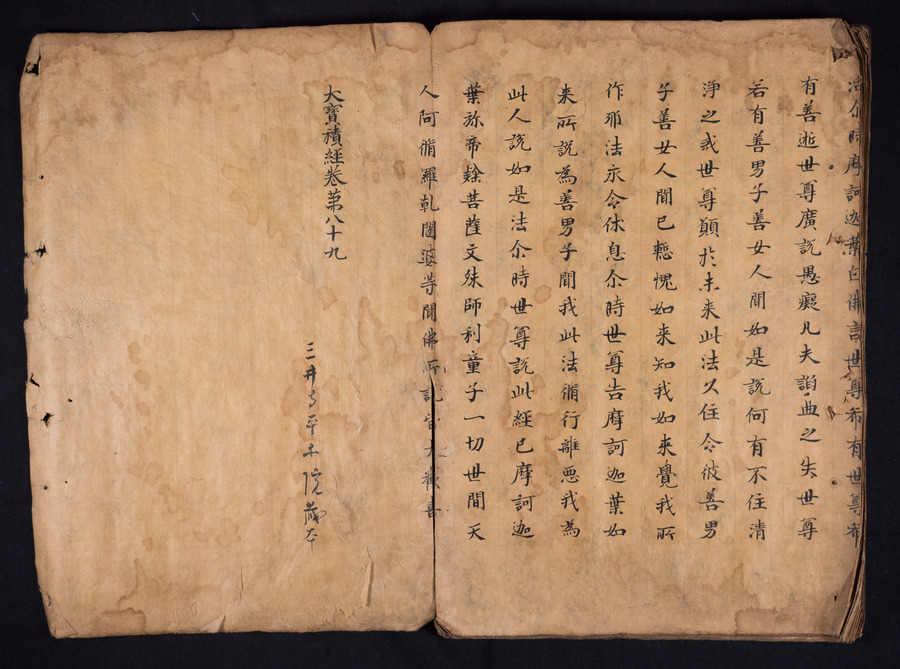 爾時摩訶迦葉白佛言世尊希有世尊希
有善逝世尊廣說愚癡凡夫諂曲之失世尊
若有善男子善女人聞如是說何有不住清
淨之戒世尊願於未來此法久住令彼善男
子善女人聞已慙愧如來知我如來覺我所
作邪法永令休息尒時世尊告摩訶迦葉如
來所說為善男子聞我此法脩行離惡我為
此人說如是法尒時世尊說此經已摩訶迦
葉弥帝𨽻菩薩文殊師利童子一切世間天
人阿脩羅乹闥婆等聞佛所說皆大歡喜
大寶積經卷第八十九
三井寺平等院藏本